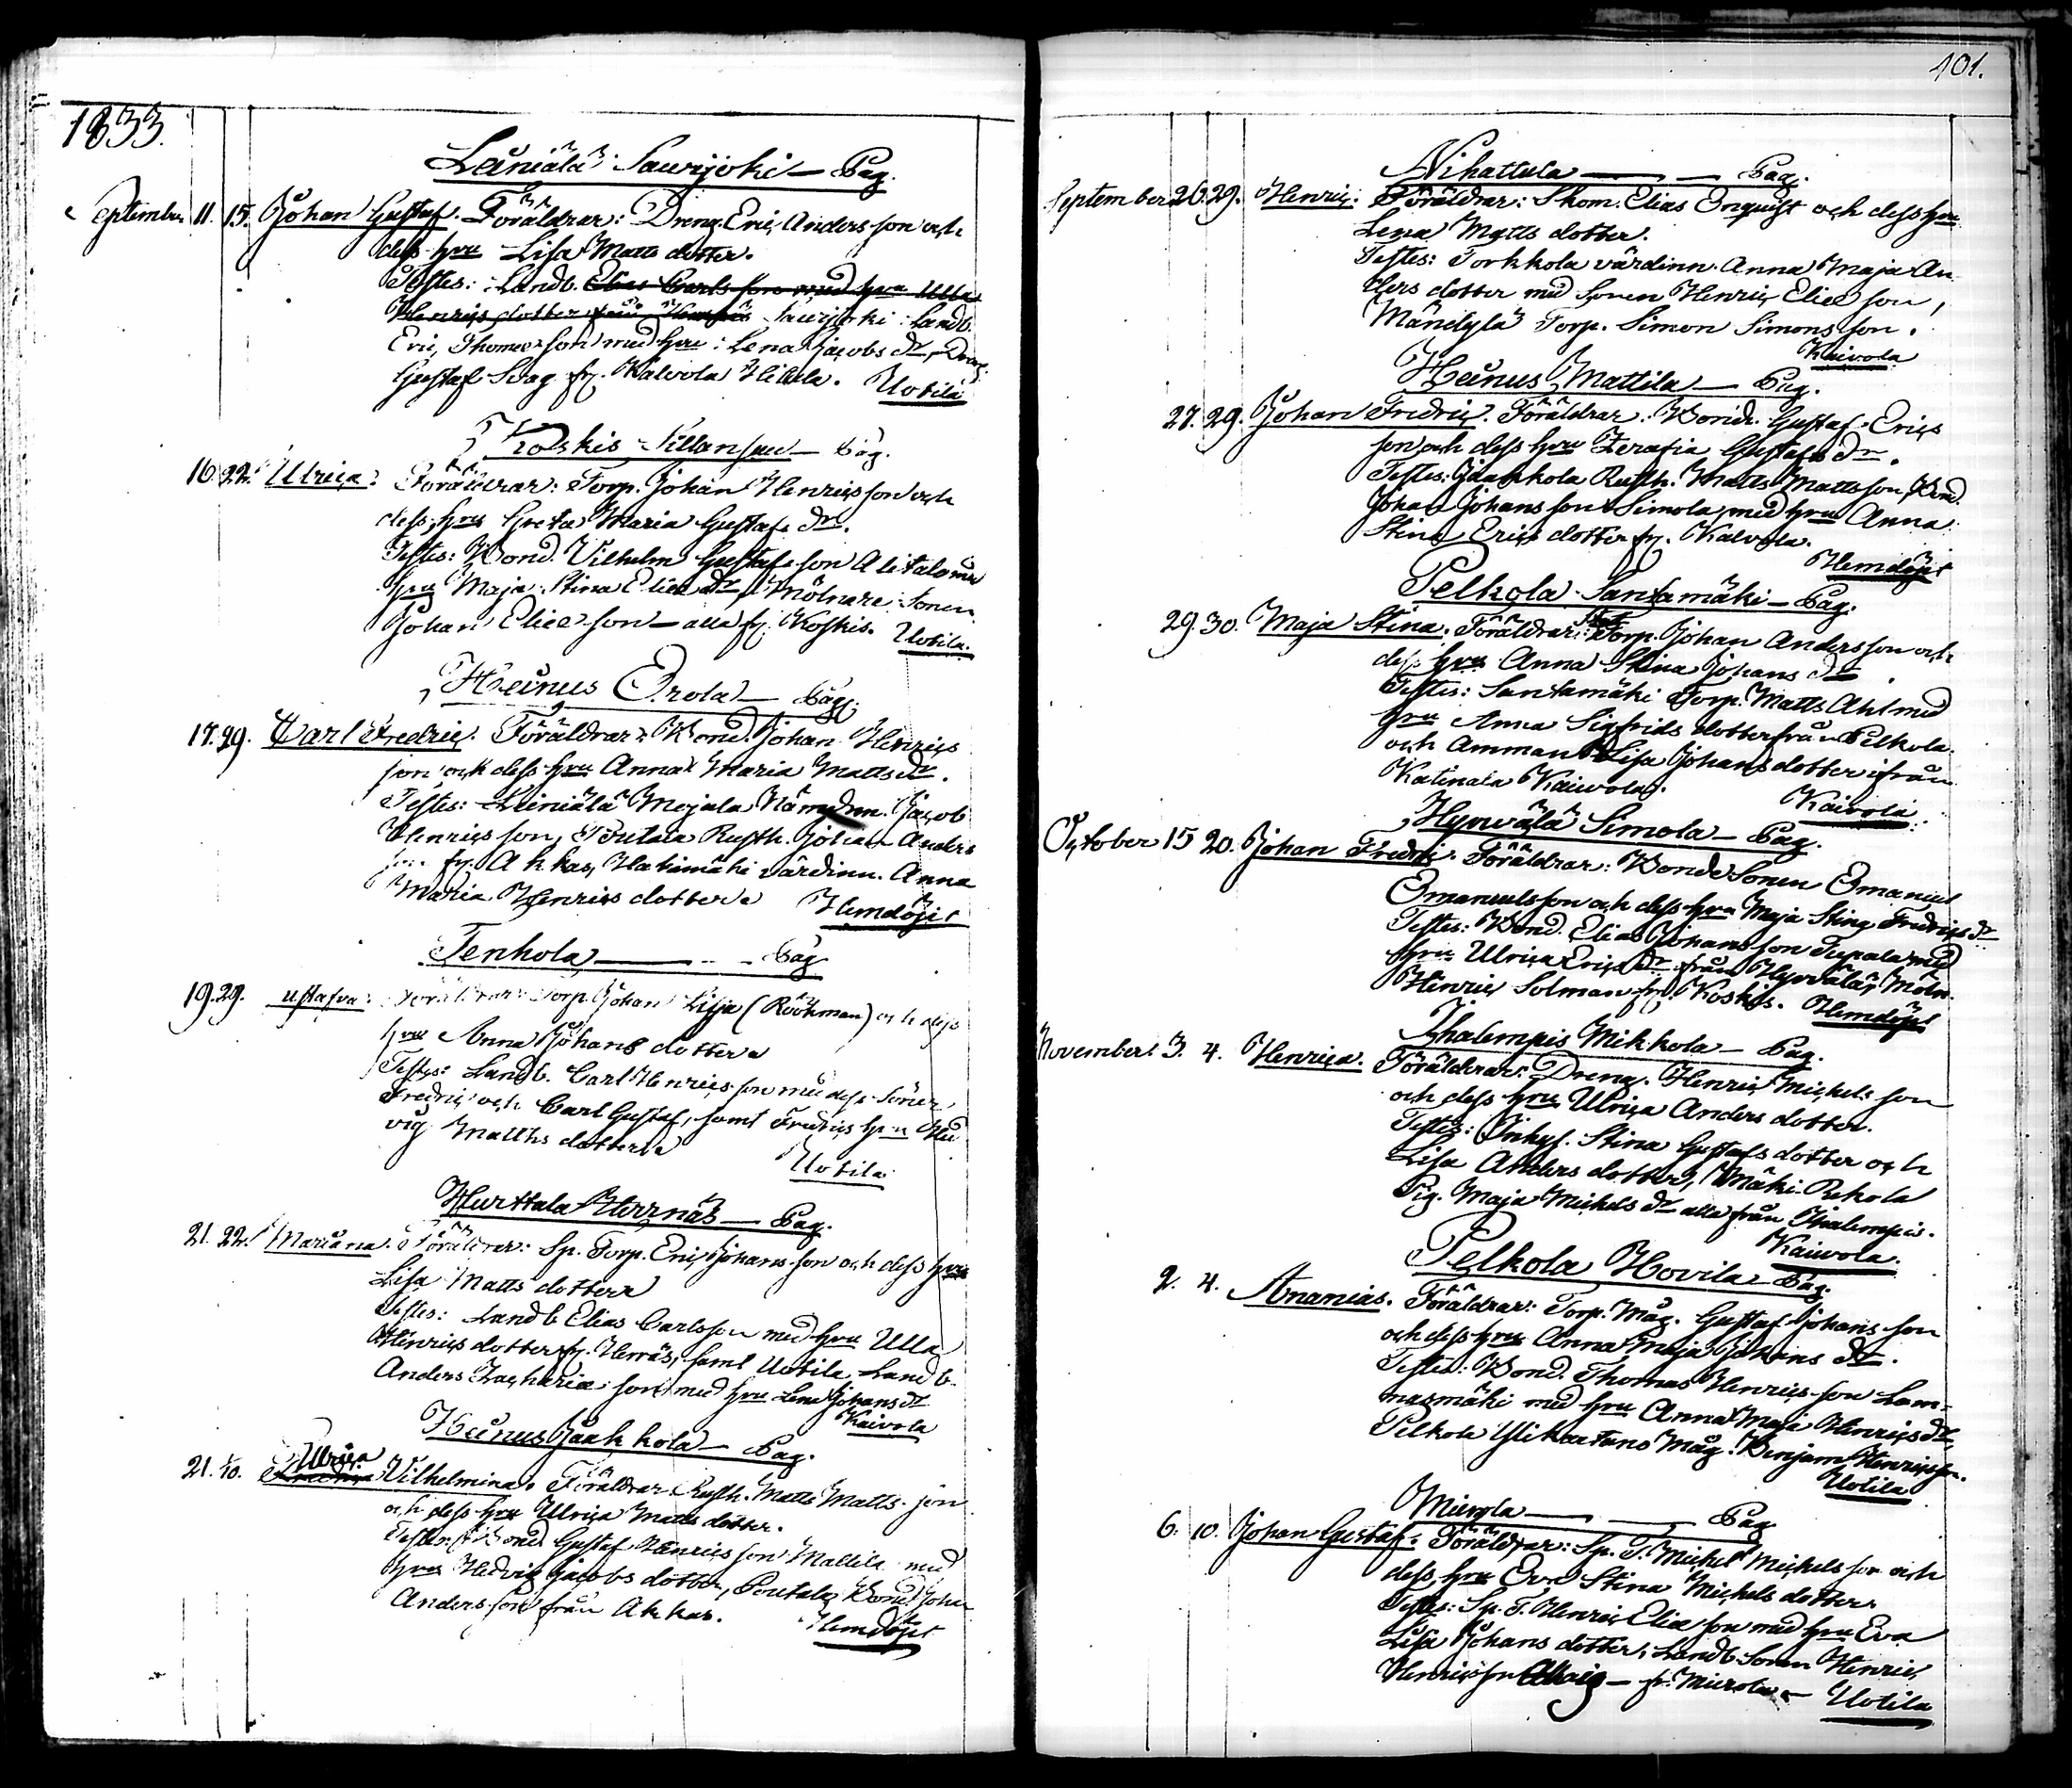 1833.
Leiniälä Sawijoki — Pag.
September 11. 15. Johan Gustaf. Föräldrar: Dreng. Eric Anders son och
dess hru Lisa Matts dotter.
Testes: Landb. Elias Carls son med hru Ulla
Henrics dotter från Herrnäs Sawijoki Landb.
Eric Thomæ son med hru: Lena Jacobs dr, Dreng
Gustaf Svag fr. Kalvola Hikila. Uotila
Koskis Sillansuu — Pag.
16. 22. Ulrica: Föräldrar: Torp. Johan Henrics son och
dess hru Greta Maria Gustafs dr.
Testes: Bond. Vilhelm Gustafs son Alitalo med
hru Maja Stina Eliæ dr, Mölnare Sonen
Johan Eliæ son — alla fr. Koskis. Uotila.
Heinus Erola — Pag.
17. 29. Carl Fredric. Föräldrar: Bond. Johan Henrics
son och dess hru Anna Maria Matts dr.
Testes: Leiniälä Mojala Nämdm. Jacob
Henrics son, Poutala Rusth. Johan Anders
son fr. Akkas, Hakimäki värdinn. Anna
Maria Henrics dotter. Hemdöpt
Tenhola — Pag
19. 29. ustafva: Föräldrar: Torp. Johan Lilja (Röökman) och dess
hru Anna Johans dotter
Testes: Landb. Carl Henrics son med dess Söner
Fredric och Carl Gustaf, samt Fredrics hru Hed
vig Matths dotter. Uotila
Hurttala Herrnäs — Pag.
21. 22. Mariana. Föräldrar: Sp. Torp. Eric Johans son och dess hru
Lisa Matts dotter
Testes: Landb Elias Carlsson med hru Ulla
Henrics dotter fr. Herräs, samt Uotila Landb.
Anders Zachariæ son med hru Lena Johans dr
Kaivola
Heinus Jaakkola — Pag.
Ulrica
21. 1/10. Vilhelmina. Föräldrar Rusth. Matts Matts son
och dess hru Ulrica Matts dotter.
Testes: Bond Gustaf Henrics son Mattila med
hru Hedvig Jacobs dotter, Poutala Bond. Johan
Anders son från Akkas. Hemdöpt
401.
Nihattula — — Pag.
September 26. 29. Henric: Föräldrar: Skom. Elias Enquist och dess hru
Lena Matts dotter.
Testes: Torkkola värdinn. Anna Maja An
ders dotter med Sonen Henric Eliæ son,
Mändylä Torp. Simon Simons son.
Kaivola
Heinus Mattila — Pag.
27. 29. Johan Fredric. Föräldrar: Bond. Gustaf Erics
son och dess hru Zerafia Gustafs dr.
Testes: Jaakkola Rusth. Matts Matts son, Bond
Johan Johans son Simola med hru Anna
Stina Erics dotter fr. Kalvola.
Hemdöpt
Pelkola Santamäki — Pag.
29. 30. Maja Stina. Föräldrar: Torp. Johan Anders son och
dess hru Anna Stina Johans dr
Testes: Santamäki Torp. Matts Ahl med
hru Anna Sigfrids dotter från Pelkola.
och Amman Lisa Johans dotter ifrån
Katinala Kaiwola. Kaivola
Hyrwälä Simola — Pag.
October 15 20. Johan Fredric. Föräldrar: Bonde Sonen Emanuel
Emanuelsson och dess hru Maja Stina Fredrics dr
Testes: Bond. Elias Johans son Tupala med
hru Ulrica Erics dr från Hyrvälä, Möln.
Henric Solman fr. Koskis. Hemdöpt
Ihalempis Mikkola — Pag.
November 3. 4. Henrica. Föräldrar: Dreng. Henric Michels son
och dess hru Ulrica Anders dotter.
Testes: Inhys. Stina Gustafs dotter och
Lisa Anders dotter, Mäki-Rekola
Pig. Maja Michels dr alla från Ihalempis.
Kaiwola.
Pelkola Hovila — Pag.
2. 4. Ananias. Föräldrar: Torp. Måg. Gustaf Johans son
och dess hru Anna Maja Johans dr.
Testes: Bond. Thomas Henrics son Lam=
masmäki med hru Anna Maja Henrics dr,
Pelkola Ylikartano Måg. Benjam. Henricsson.
Uotila
Mierola — — Pag
6. 10. Johan Gustaf. Föräldrar: Sp. T. Michel Michels son och
dess hru Eva Stina Michels dotter
Testes: Sp. T. Henric Eliæ son med hru Eva
Lisa Johans dotter, Landb Sonen Henric
Henricsson — fr. Mierola — Uotila